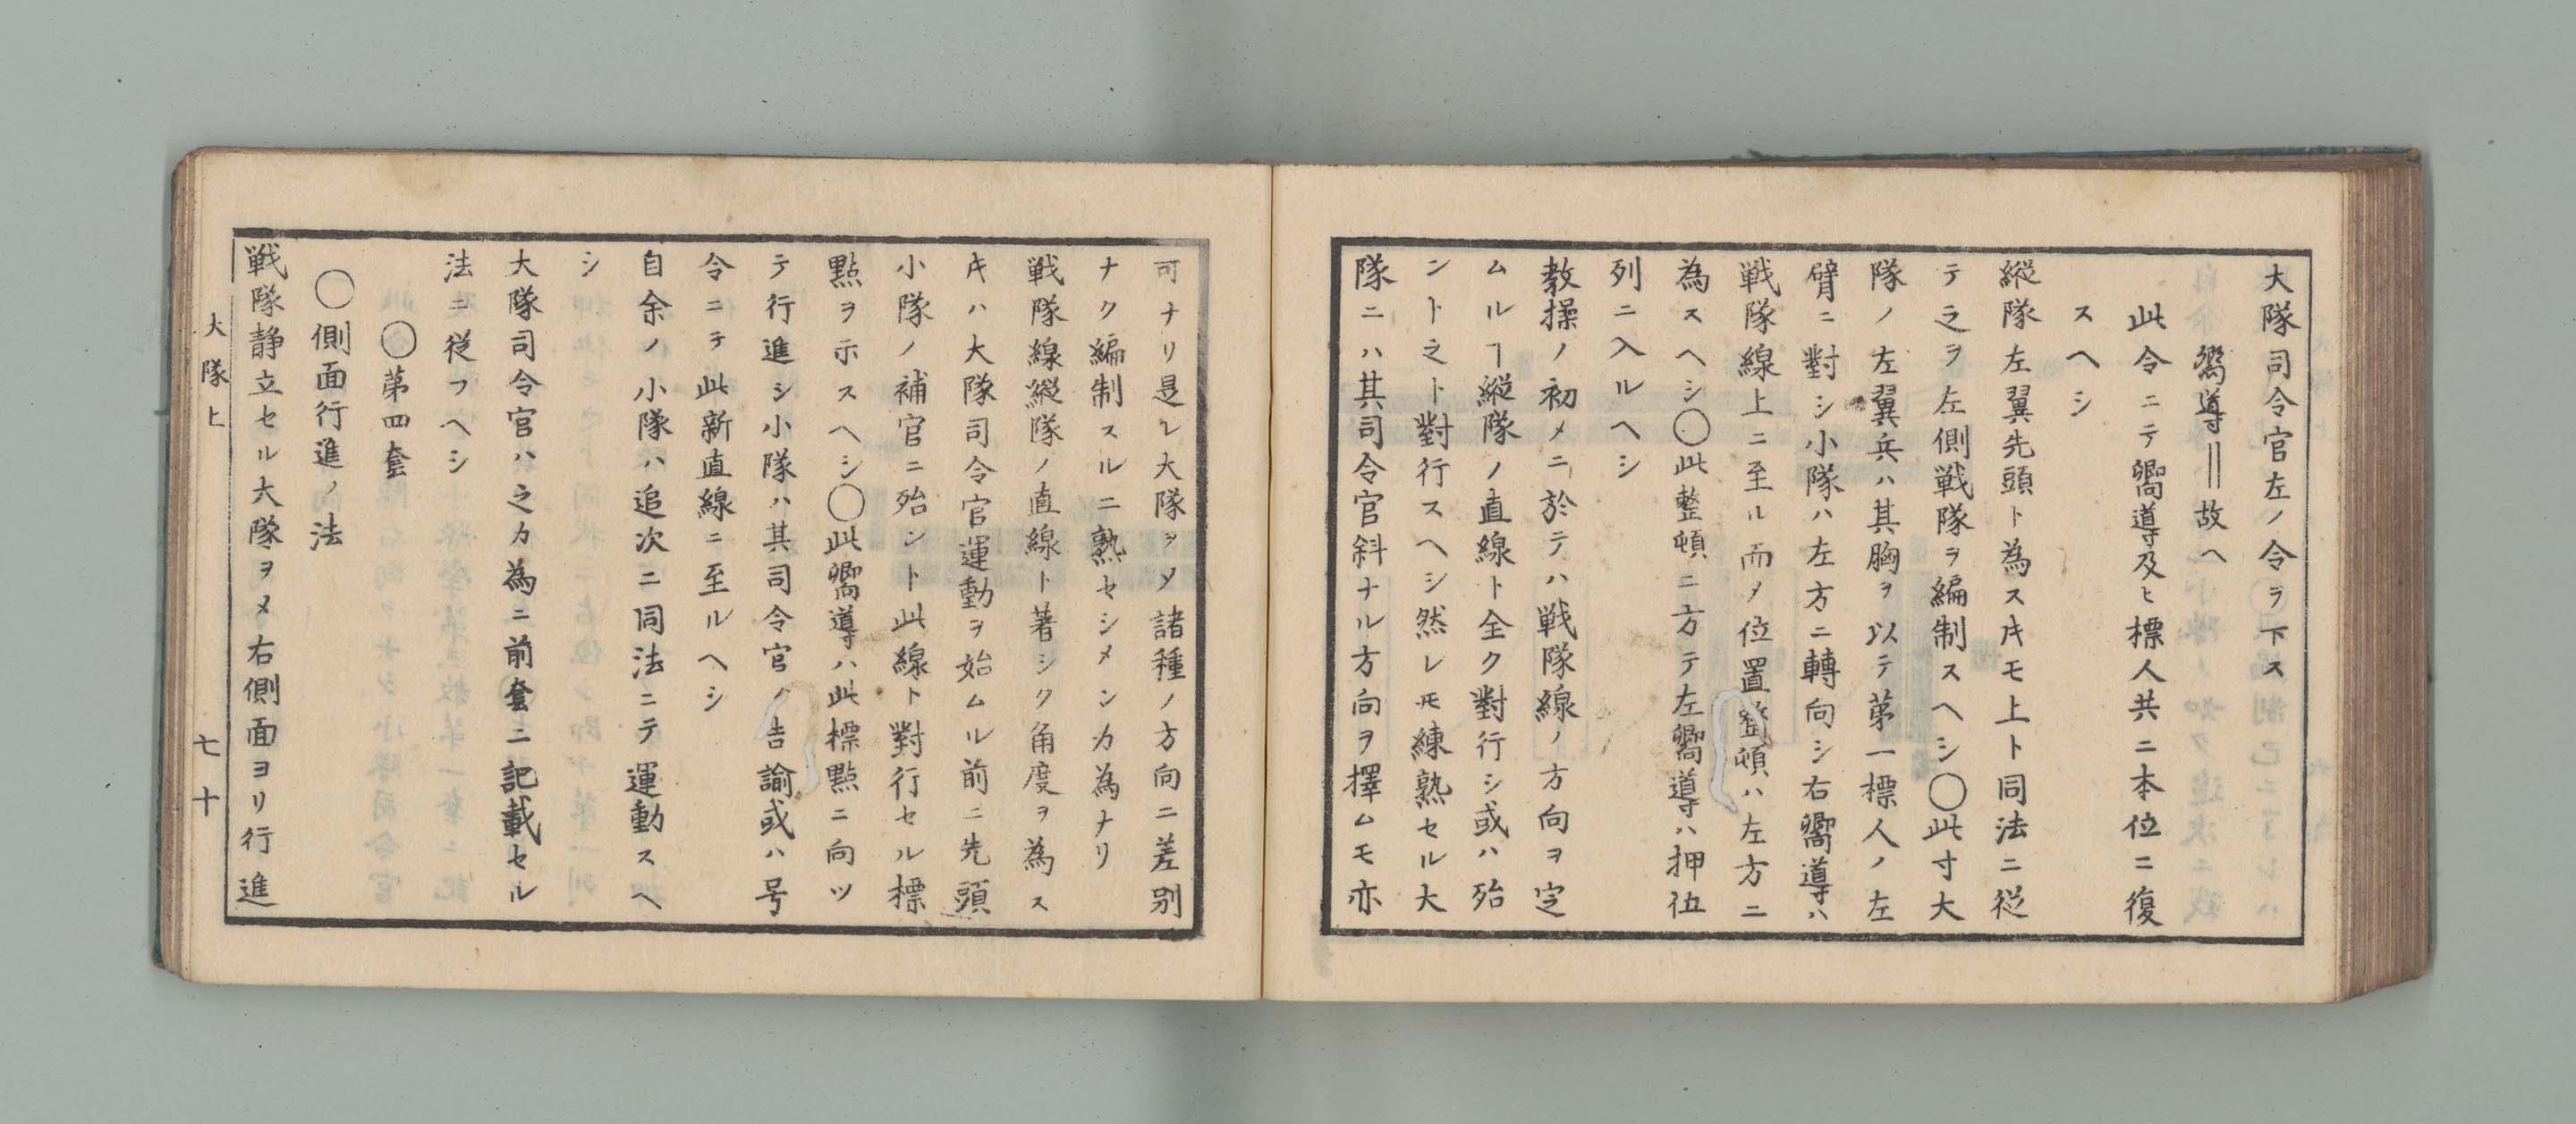 大隊司令官左ノ令ヲ下ス
嚮導‖故ヘ
此令ニテ嚮導及ヒ標人共ニ本位ニ復
スヘシ
縦隊左翼先頭ト為ス𪜈モ上ト同法ニ従
テ之ヲ左側戦隊ヲ編制スヘシ〇此寸大
隊ノ左翼兵ハ其胸ヲ以テ第一標人ノ左
臂ニ對シ小隊ハ左方ニ轉向シ右嚮導ハ
戦隊線上ニ至ル而〆位置整頓ハ左方ニ
為スヘシ〇此整頓ニ方テ左嚮導ハ押伍
列ニ入ルヘシ
教操ノ初メニ於テハ戦隊線ノ方向ヲ定
ムルヿ縦隊ノ直線ト全ク對行シ或ハ殆
ント之ト對行スヘシ然レ𪜈練熟セル大
隊ニハ其司令官斜ナル方向ヲ擇ムモ亦
可ナリ是レ大隊ヲ〆諸種ノ方向ニ差別
ナク編制スルニ熟セシメンカ為ナリ
戦隊線縦隊ノ直線ト著シク角度ヲ為ス
𪜈ハ大隊司令官運動ヲ始ムル前ニ先頭
小隊ノ補官ニ殆ント此線ト對行セル標
點ヲ示スヘシ〇此嚮導ハ此標點ニ向ツ
テ行進シ小隊ハ其司令官ノ告諭或ハ号
令ニテ此新直線ニ至ルヘシ
自余ノ小隊ハ追次ニ同法ニテ運動スヘ
シ
大隊司令官ハ之カ為ニ前套ニ記載セル
法ニ従フヘシ
〇第四套
〇側面行進ノ法
戦隊静立セル大隊ヲ〆右側面ヨリ行進
大隊上 七十